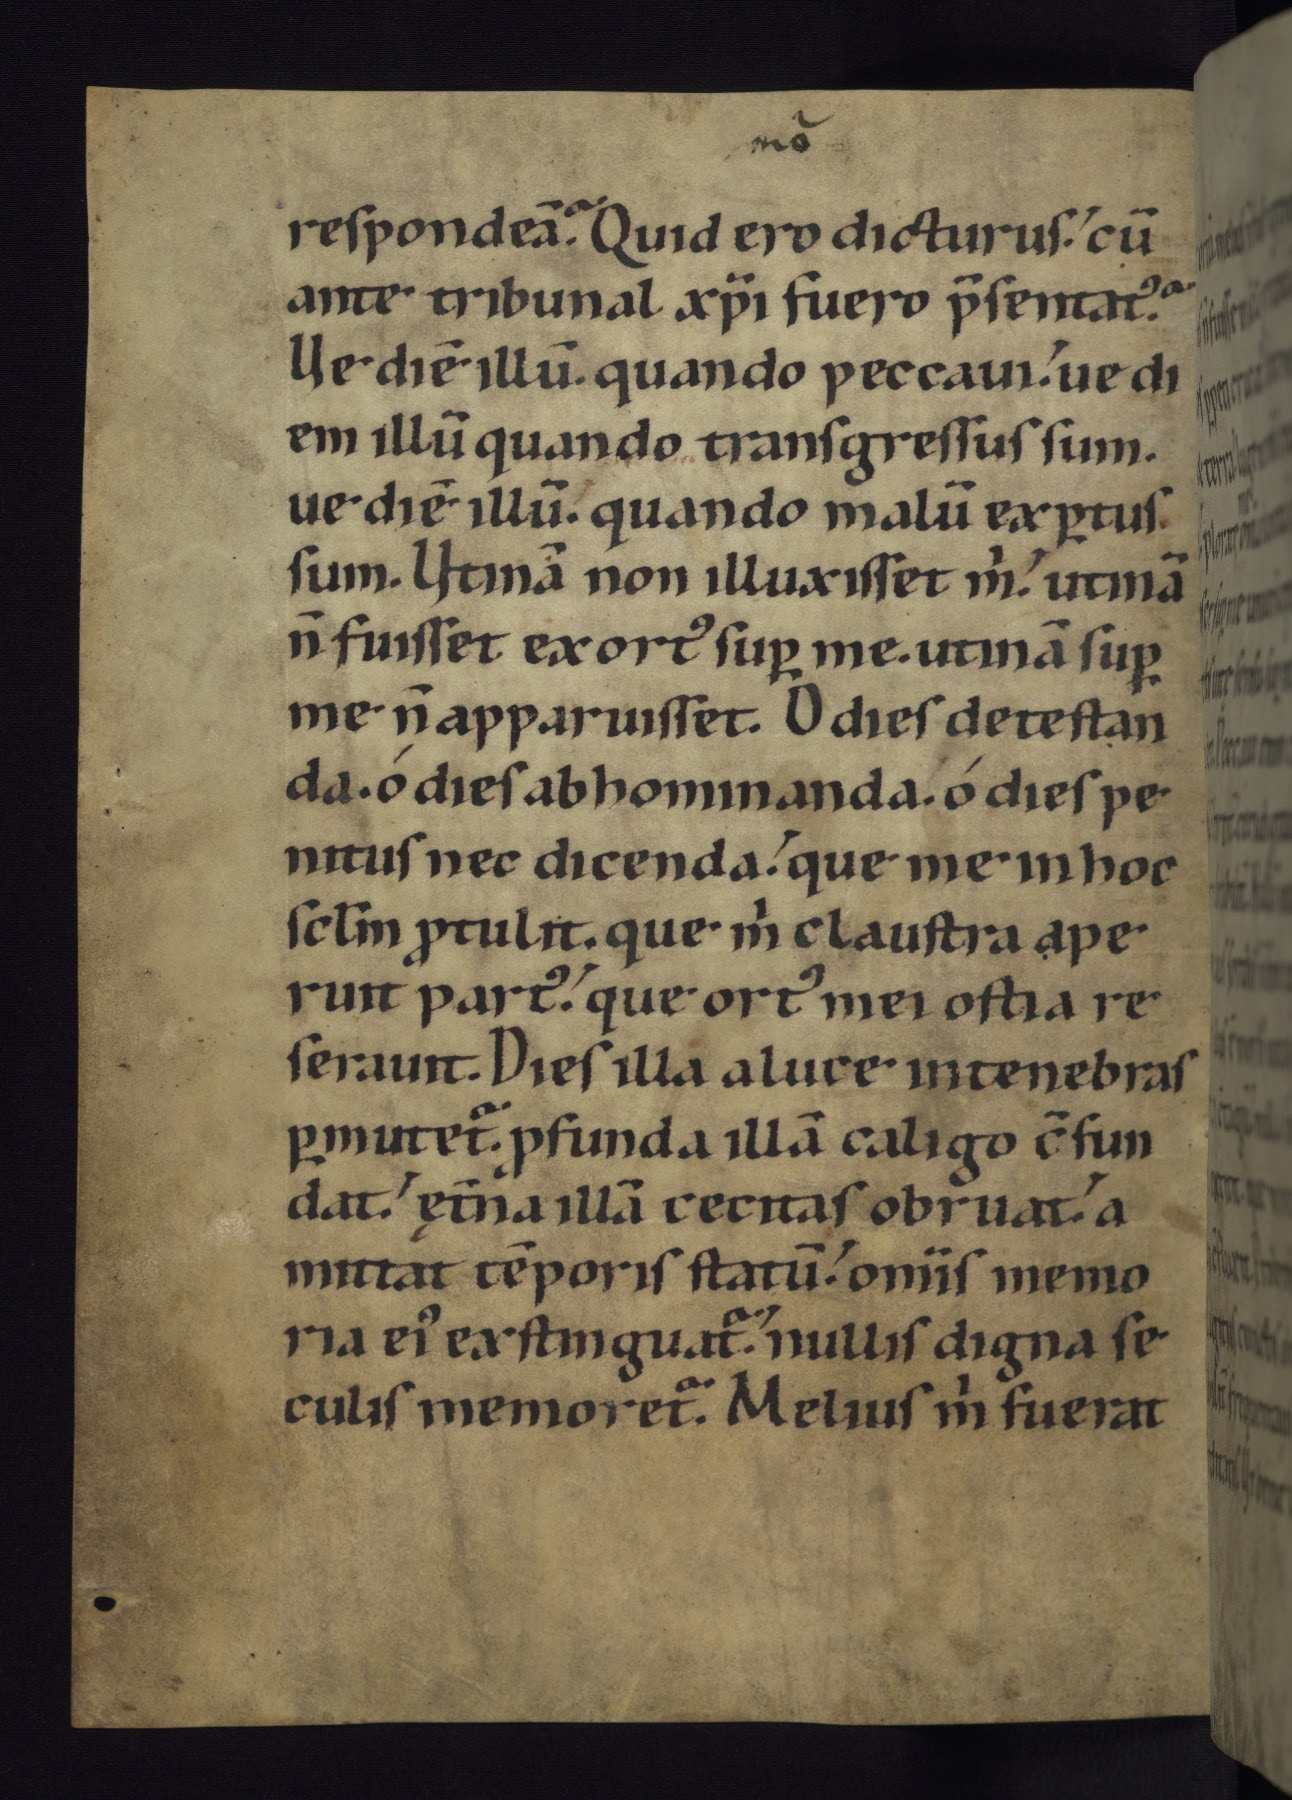 mõ
respondeã. Quid ero dicturus. cũ
ante tribunal xp̃i fuero p̃sentatꝰ.
Ve diẽ illũ. quando peccaui. ue di
em illũ quando transgressus sum.
ue diẽ illũ. quando malũ exꝑtus
sum. Vtinã non illuxisset m̊. utinã
ñ fuisset exortꝰ suꝑ me. utinã suꝑ
me ñ apparuisset. O dies detestan
da. ó dies abhominanda. ó dies pe
nitus nec dicenda. que me in hoc
scl̃m ꝓtulit. que m̊ claustra ape
ruit partꝰ. que ortꝰ mei ostia re
serauit. Dies illa a luce in tenebras
ꝑmutet̃. ꝓfunda illã caligo c̃fun
dat. ęt̃na illã cecitas obruat. a
mittat tẽporis statũ. om̃is memo
ria eiꝰ exstinguat̃. nullis digna se
culis memoret̃. Melius m̊ fuerat